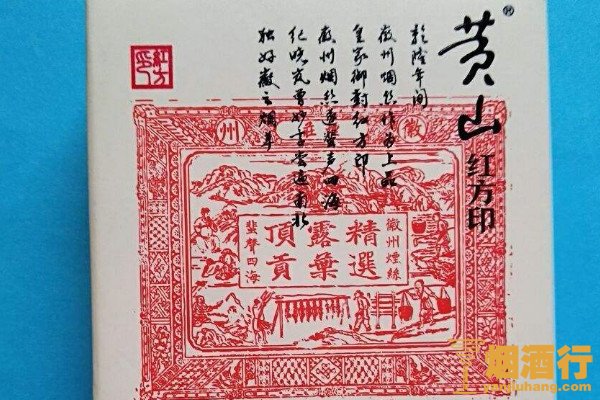 黄山®
红方印
乾隆年间
徽州烟丝作为上品
皇家御封红方印
徽州烟丝遂蜚声四海
纪晓岚曾妙手云南北
独好徽之烟草
紅方印
徽州
徽州煙絲
精選
露葉
頂貢
蜚聲四海
烟酒行
yanjiuhang.com